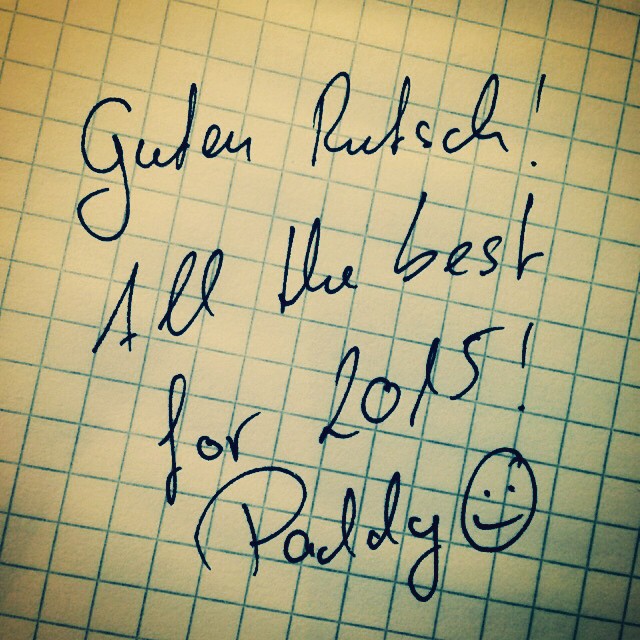 Guten Rutsch!
All the best
for 2015!
Paddy